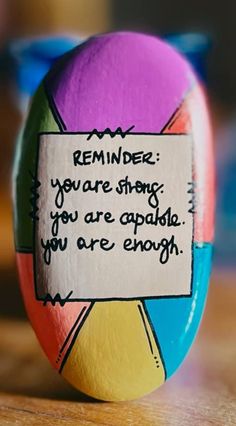 REMINDER:
you are strong.
you are capable.
you are enough.